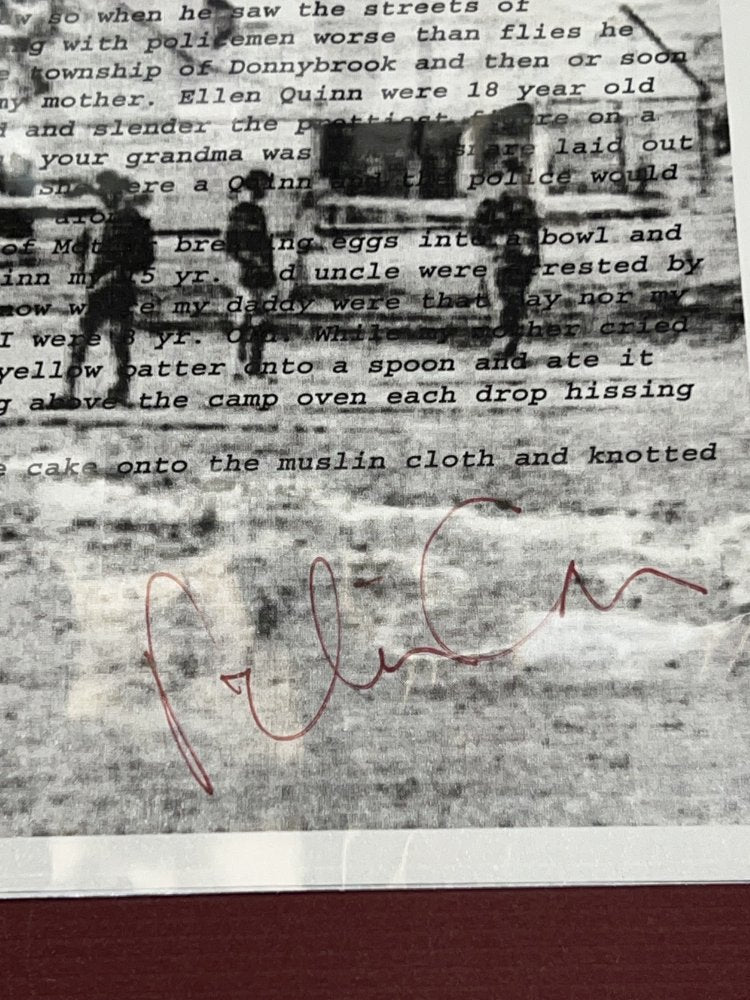 w so when he saw the streets of
ng with policemen worse than flies he
e township of Donnybrook and then or soon
my mother. Ellen Quinn were 18 year old
d and slender the prettiest figure on a
your grandma was laid out
She were a Quinn and the police would
of Mother breaking eggs into a bowl and
inn my 15 yr. old uncle were arrested by
now where my daddy were that day nor my
I were 3 yr. Old. While my mother cried
yellow batter onto a spoon and ate it
g above the camp oven each drop hissing
e cake onto the muslin cloth and knotted